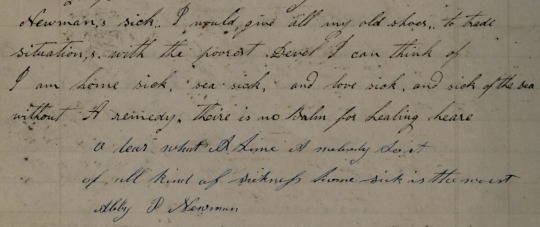 Newman,s sick. I would, give all my old shoes, to trade
situation,s, with the poorest Devel I can think of
I am home sick, sea sick, and love sick, and sick of the sea
without A remedy. theire is no balm for healing heare
o lear what A tune A melody
of all kind of sickness home sick is the worst
Abby P Newman